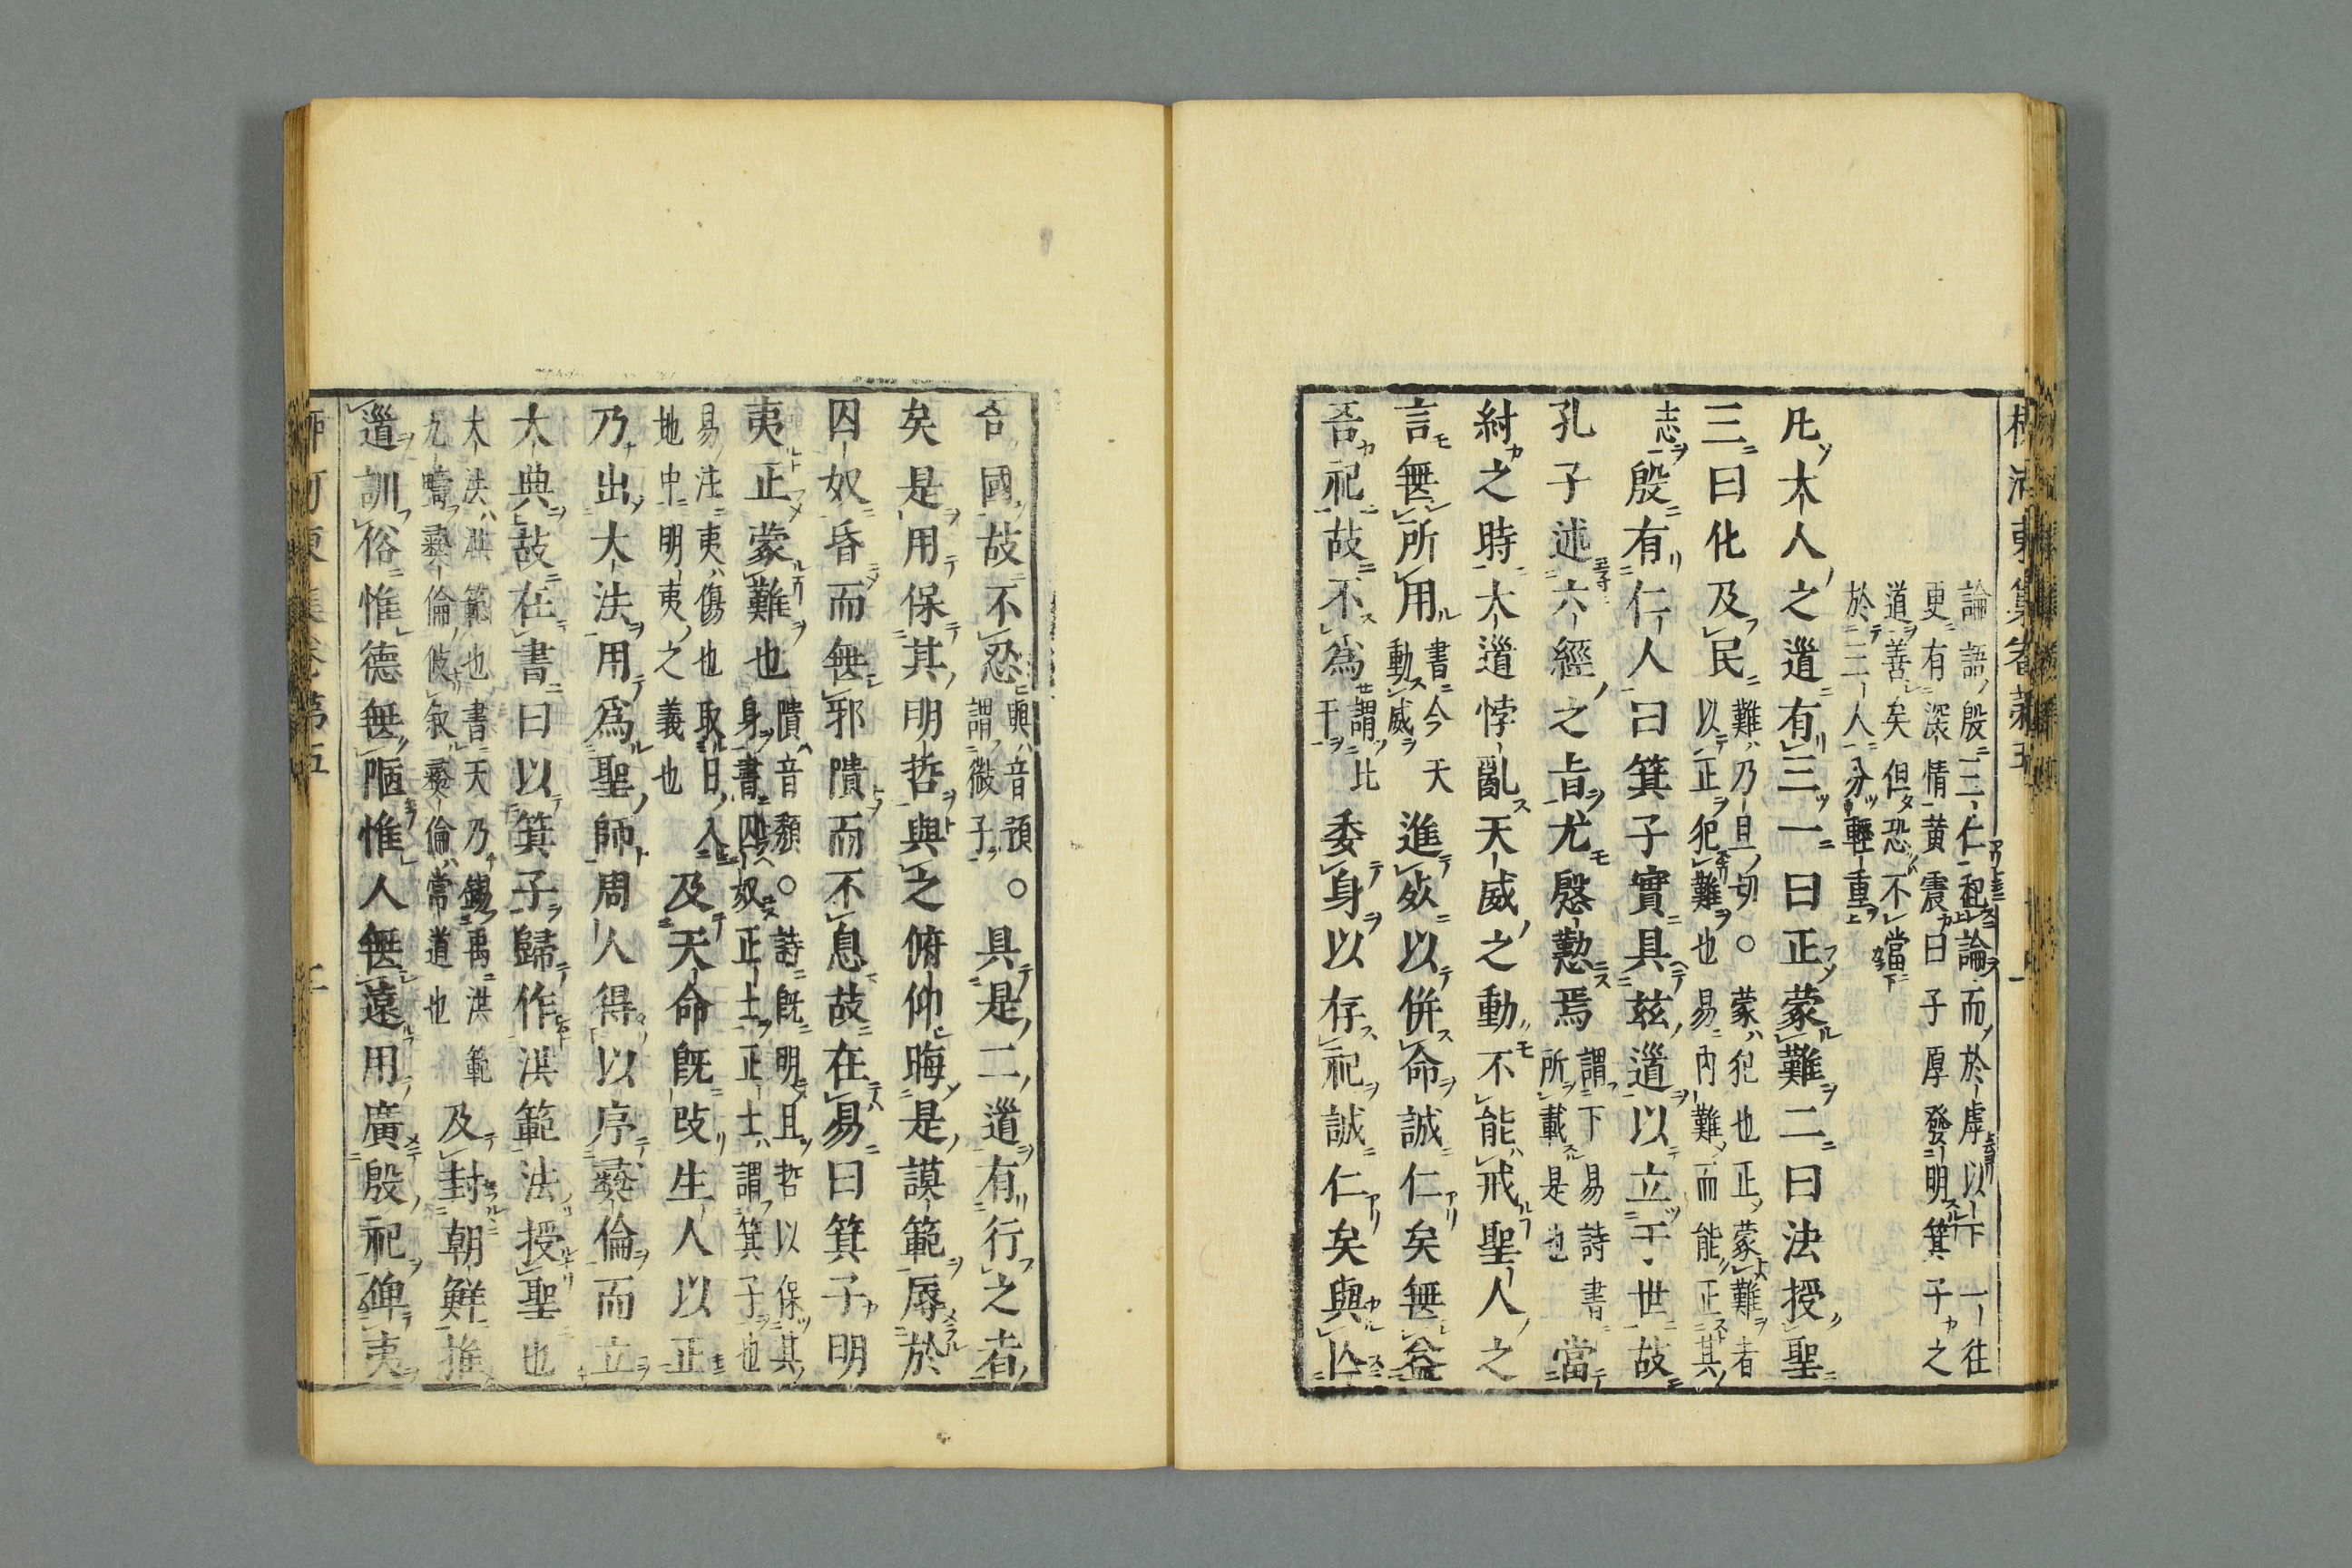 論語殷三仁一起論而於虖以下一往
更有深情黄震曰子厚發明箕子之
道善矣但恐不當
於三人分輕重
凡大人之道有三一曰正蒙難二曰法授聖
三曰化及民難乃旦切○蒙犯也正蒙難者
以正犯難也易内難而能正其
志殷有仁人曰箕子實具兹道以立于世故
孔子述六經之㫖尤慇懃焉謂下易詩書
所載是也當
紂之時大道悖亂天威之動不能戒聖人之
言無所用書今天
動威進死以併命誠仁矣無益
吾祀故不爲謂比
干委身以存祀誠仁矣與亡
吾國故不忍與音預
謂微子○具是二道有行之者
矣是用保其明哲與之俯仰晦是謨範辱於
囚奴昏而無邪隤而不息故在易曰箕子明
夷正蒙難也隤音頽○詩既明且哲以保其
身書囚奴正士正士謂箕子也
易注夷傷也取日入
地中明夷之義也及天命既改生人以正
乃出大法用爲聖師周人得以序彝倫而立
大典故在書曰以箕子歸作洪範法授聖也
大法洪範也書天乃錫禹洪範
九疇彝倫攸叙彝倫常道也及封朝鮮推
道訓俗惟德無陋惟人無遠用廣殷祀俾夷